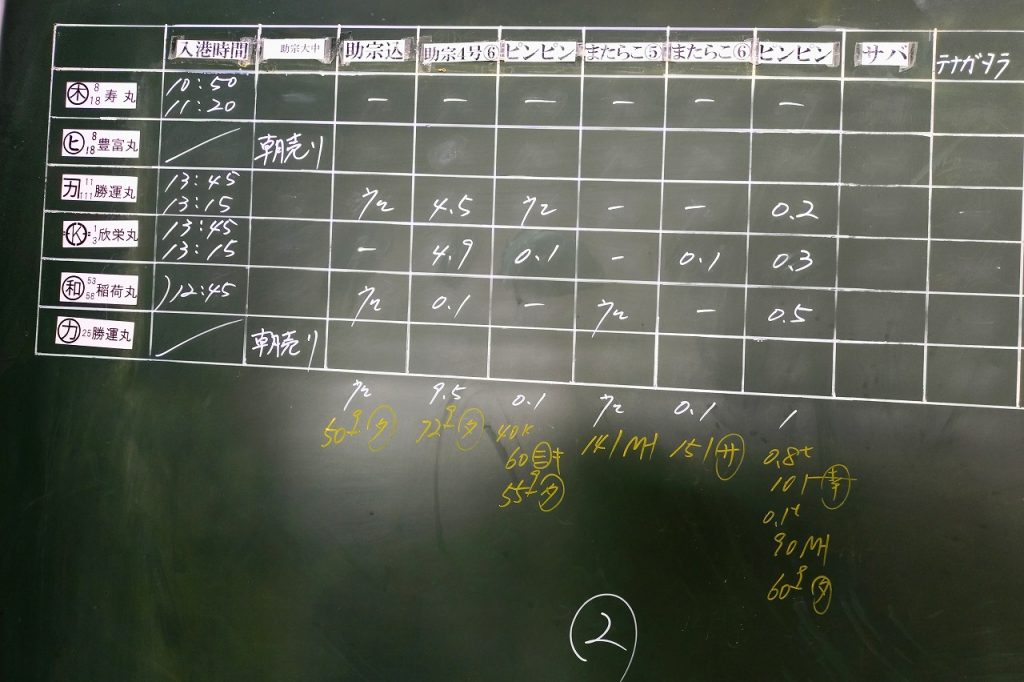 入港時間 助宗大中 助宗込 助宗4号⑥ ピンピン またらこ⑤ またらこ⑥ ピンピン サバ テナガタラ
㊍ 8 18 寿丸 10:50 11:20 — — — — — —
ヒ 8 18 豊富丸 ／ 朝売り
カ 11 111 勝運丸 13:45 13:15 4.5 — — 0.2
K 1 3 欣栄丸 13:45 13:15 - 4.9 0.1 — 0.1 0.3
和 53 58 稲荷丸 )12:45 0.1 — — 0.5
カ 25 勝運丸 ／ 朝売り
9.5 0.1 0.1 1
50 タ 72 タ 40K 141 MH 151 サ 0.8t
60 キ 101 幸
55 タ 0.1t
90 MH
60 タ
②